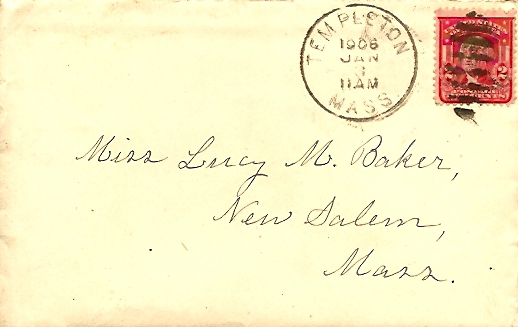 TEMPLETON
1906
JAN
11AM
MASS.
2 2
Miss Lucy M. Baker,
New Salem,
Mass.